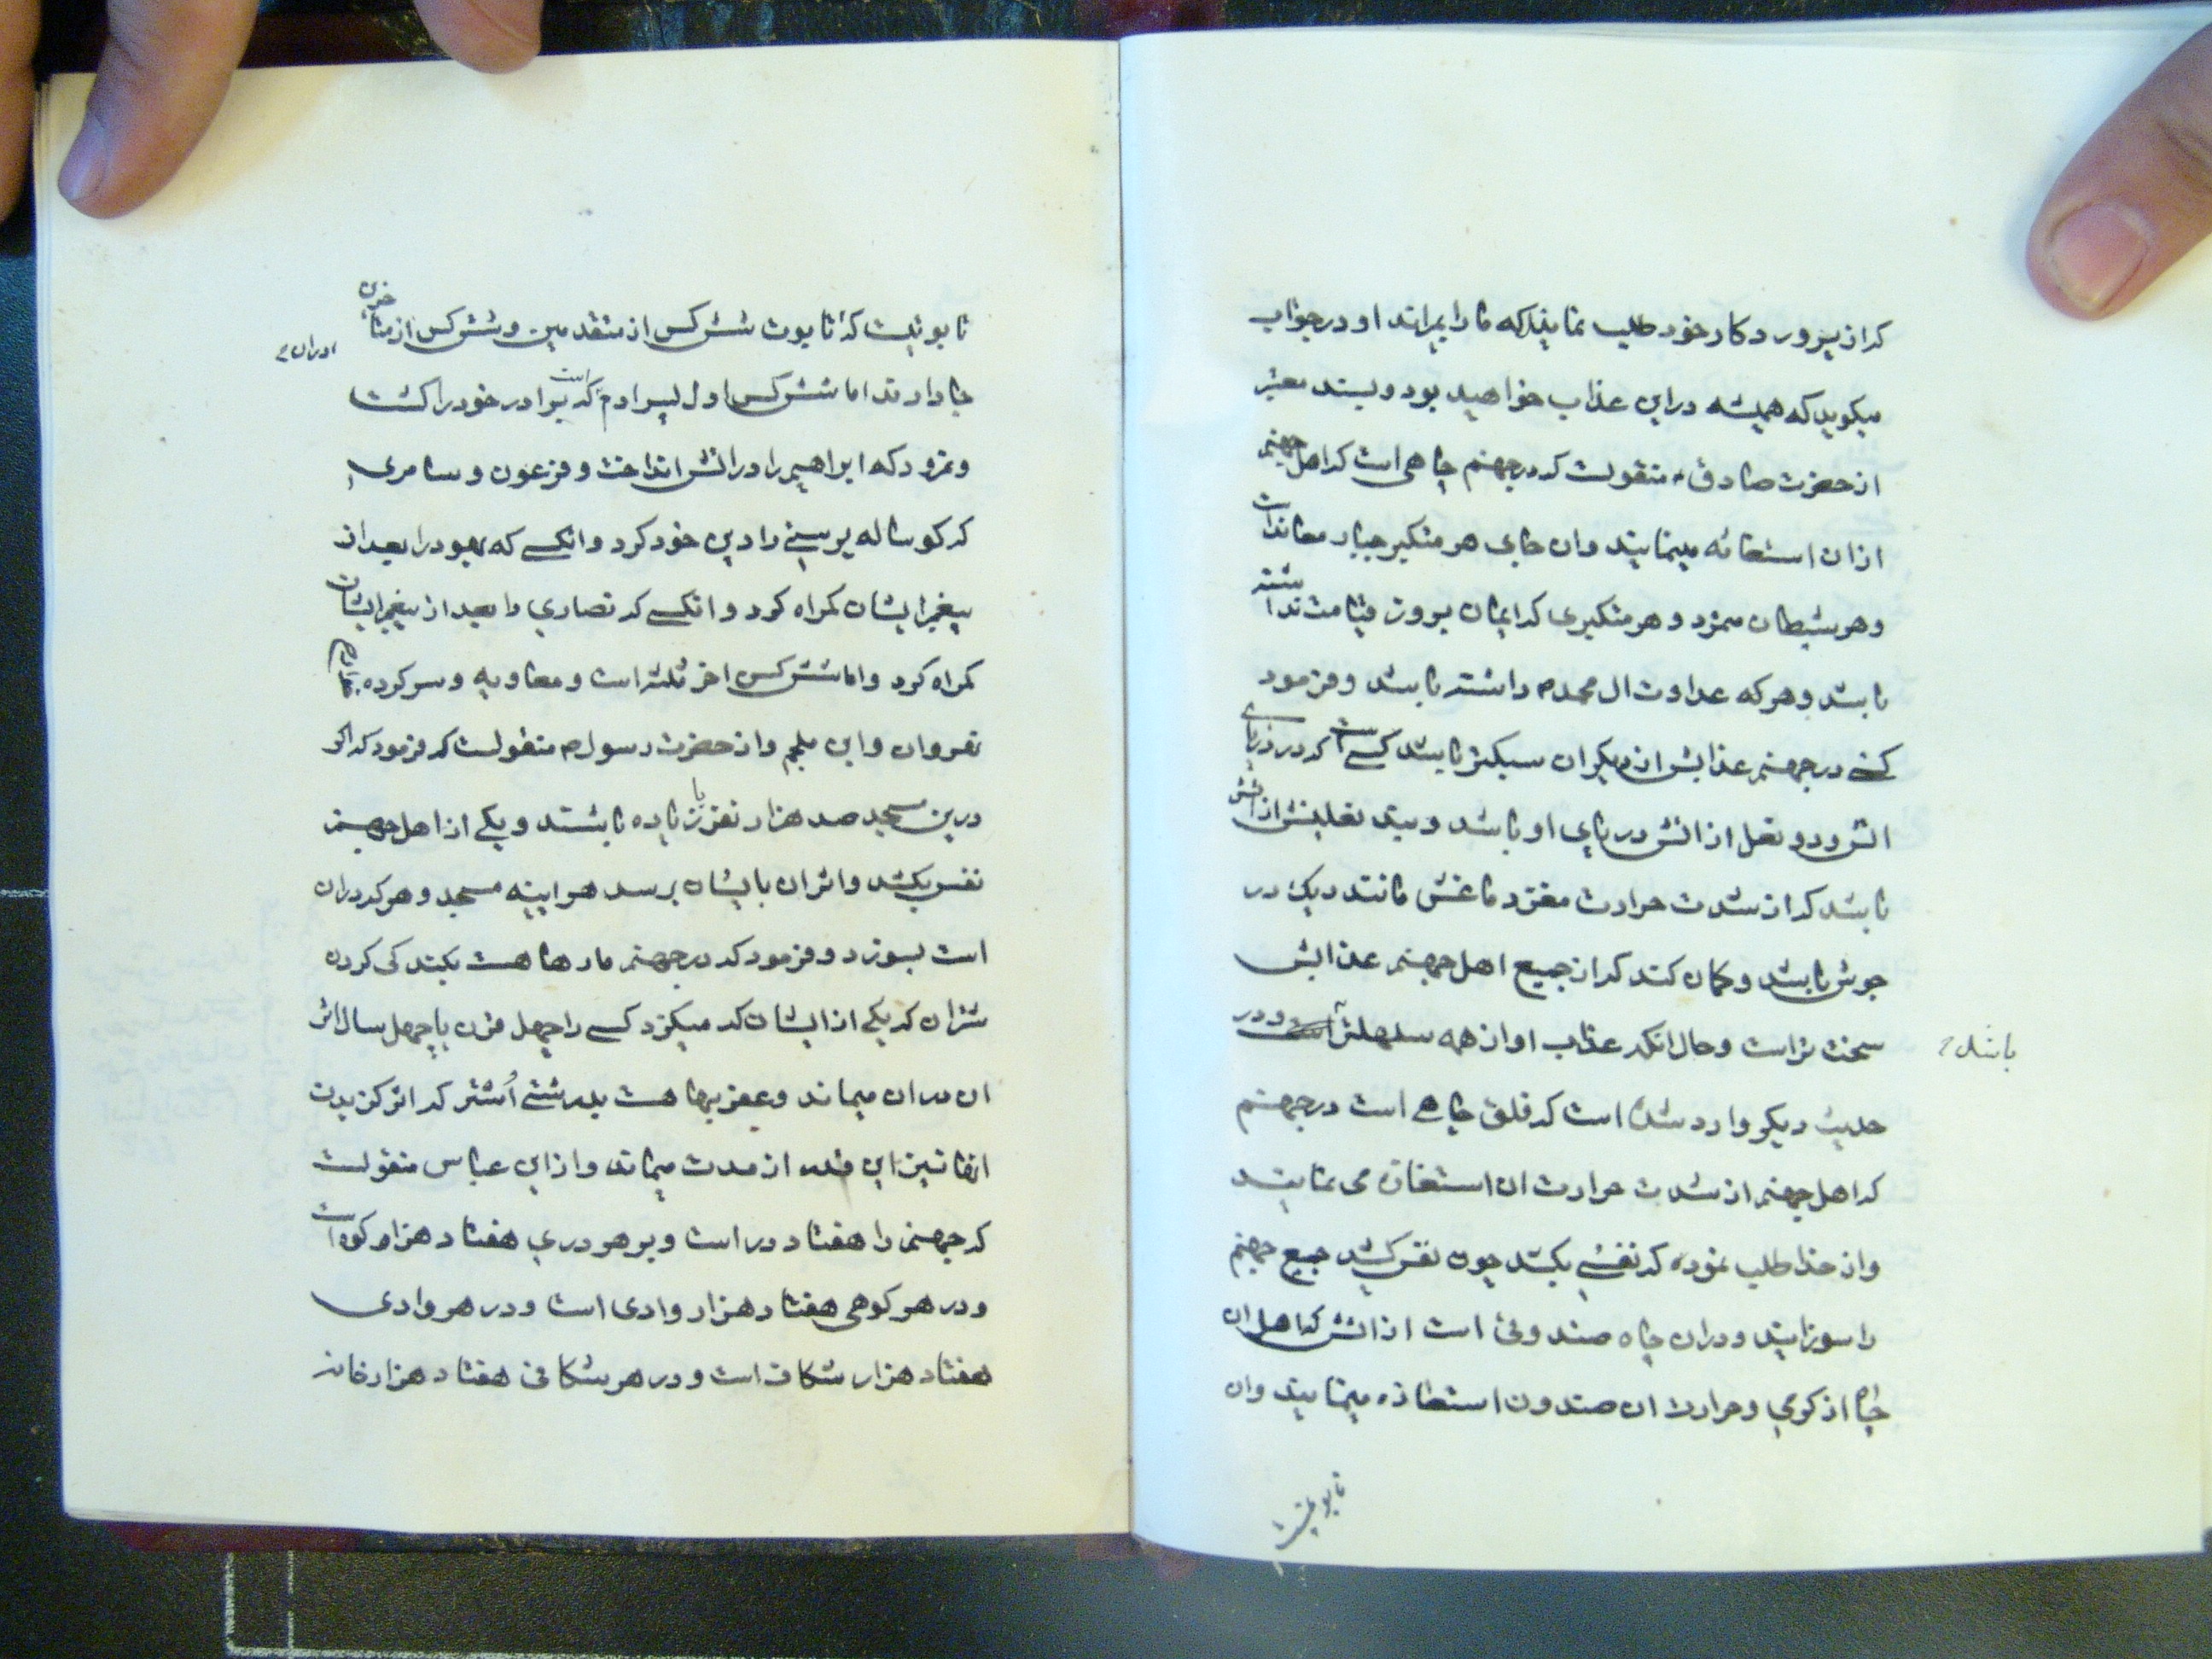 که از پروردکار خود طلب نمایند که ما را بمیراند او در جواب
میکوید که همیشه در این عذاب خواهید بود و بسند معتبر
از حضرت صادق ع منقولست که در جهنم چاهی است که اهل جهنم
از ان استعاذه مینمایند وان جای هر متکبر جبار معاند است
و هر شیطان متمرد و هر متکبری که ایمان بروز قیامت نداشته
باشد و هر که عداوت ال محمد ص داشته باشد و فرمود
کسی در جهنم عذابش از دیکران سبکتر باشد کسی است که در دریای
اتش و دو نعل از اتش در پای او باشد و بند نعلینش از اتش
باشد که از شدت حرارت مغز دماغش مانند دیک در
جوش باشد و کمان کند که از جمیع اهل جهنم عذابش
سخت تر است و حال انکه عذاب او از همه سهلتر است و در
باشد
حدیث دیکر وارد شده است که فلق چاهی است در جهنم
که اهل جهنم از شدت حرارت ان استعاذه می نمایند
و از خدا طلب نموده که نفسی بکشد چون نفس کشید جمیع جهنم
را سوزانید و در ان چاه صندوقی است از اتش که اهل ان
چاه از کرمی و حرارت ان صندوق استعاذه مینمایند وان
تابوتیست
تابوتیست که تابوت شش کس از متقدمین و شش کس از متاخرین
در ان
جا دارند اما شش کس اول پسر ادم است که برادر خود را کشت
و نمرود که ابراهیم را در اتش انداخت و فرعون و سامری
که کوساله پرستی را دین خود کرد و انکسی که یهود را بعد از
پیغمبر ایشان کمراه کرد و انکسی که نصاری را بعد از پیغمبر ایشان
کمراه کرد و اما شش کس اخر ثلثه است و معاویه و سرکرده خوارج
نهروان و ابن ملجم و از حضرت رسول ص منقولست که فرمود که اکر
درین مسجد صد هزار نفر یا زیاده باشند و یکی از اهل جهنم
نفس بکشد و اثر ان بایشان برسد هر اینه مسجد و هر که در ان
است بسوزد و فرمود که در جهنم مارها هست بکندکی کردن
شتران که یکی از ایشان که میکزد کسی را چهل قرن یا چهل سال اثر
ان در ان میماند و عقربها هست بدرشتی اُشتر که اثر کزیدن
انها نیز این قدر از مدت میماند و از ابن عباس منقولست
که جهنم را هفتاد در است و بر هر دری هفتاد هزار کوه است
و در هر کوهی هفتاد هزار وادی است و در هر وادی
هفتاد هزار شکاف است و در هر شکافی هفتاد هزار خانه